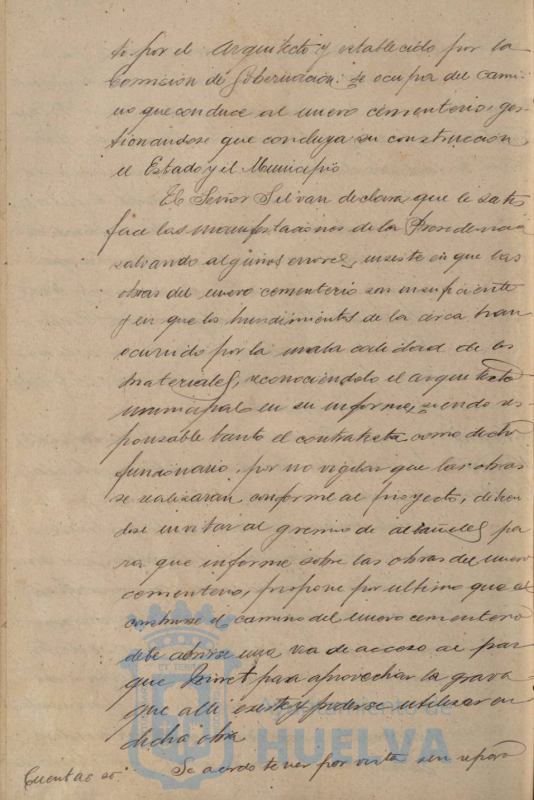 to por el Arquitecto y establecido por la
Comisión de Gobernación: se ocupa del cami-
no que conduce al nuevo cementerio, ges-
tionandose que concluya su construcción
el Estado y el Municipio
El Señor Silvan declara que le satis
face las manifestaciones de la Presidencia
salvando algunos errores, insiste en que las
obras del nuevo cementerio son insuficiente
y en que los hundimientos de la cerca han
ocurrido por la mala calidad de los
materiales, reconociéndolo el arquitecto
municipal en su informe, siendo res-
ponsable tanto el contratista como dicho
funcionario, por no vigilar que las obras
se realizaran conforme al proyecto, debien
dose invitar al gremio de albañiles pa
ra que informe sobre las obras del nuevo
cementerio, propone por ultimo que al
construirse el camino del nuevo cementerio
debe abrirse una via de acceso al par
que Moret, para aprovechar la grava
que alli existe y poderse utilizar en
dicha obra
Cuentas Se acordo tener por vista sin repáro
Ayuntamiento de
HUELVA